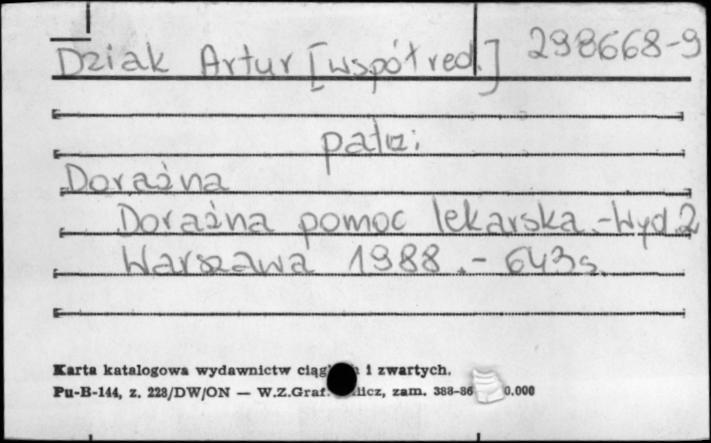 Dziak Artur [współred.] 298668-9
patrz:
Doraźna
Doraźna pomoc lekarska.-Wyd.2
Warszawa 1988.- 643s.
Karta katalogowa wydawnictw i zwartych.
Pu-B-144, z. 228/DW/ON — W.Z.Graf. zam. 388-86 0.000